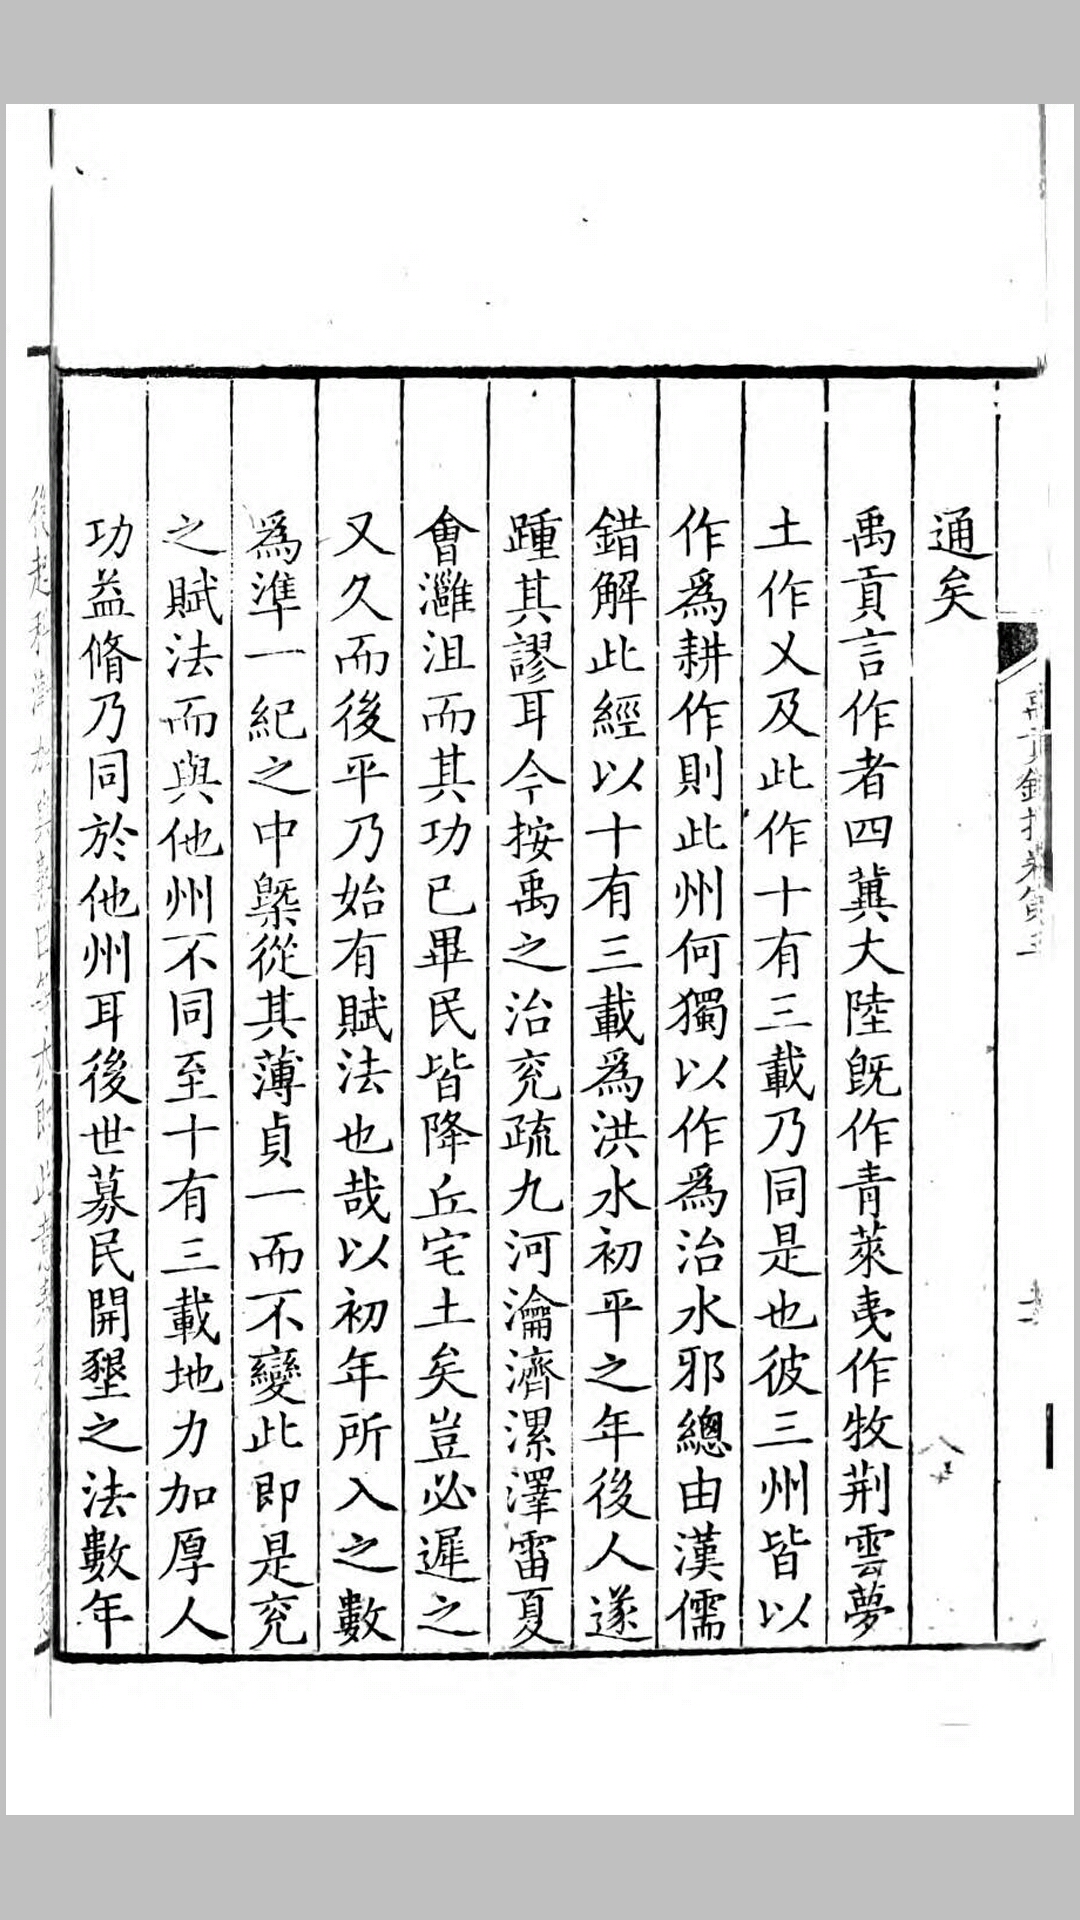 通矣
禹貢言作者四冀大陸旣作青萊夷作牧荆雲夢
土作乂及此作十有三載乃同是也彼三州皆以
作爲耕作則此州何獨以作爲治水邪總由漢儒
錯解此經以十有三載爲洪水初平之年後人遂
踵其謬耳今按禹之治兖疏九河瀹濟漯澤雷夏
會灉沮而其功已畢民皆降丘宅土矣豈必遲之
又久而後平乃始有賦法也哉以初年所入之數
爲準一紀之中槩從其薄貞一而不變此即是兖
之賦法而與他州不同至十有三載地力加厚人
功益脩乃同於他州耳後世募民開墾之法數年